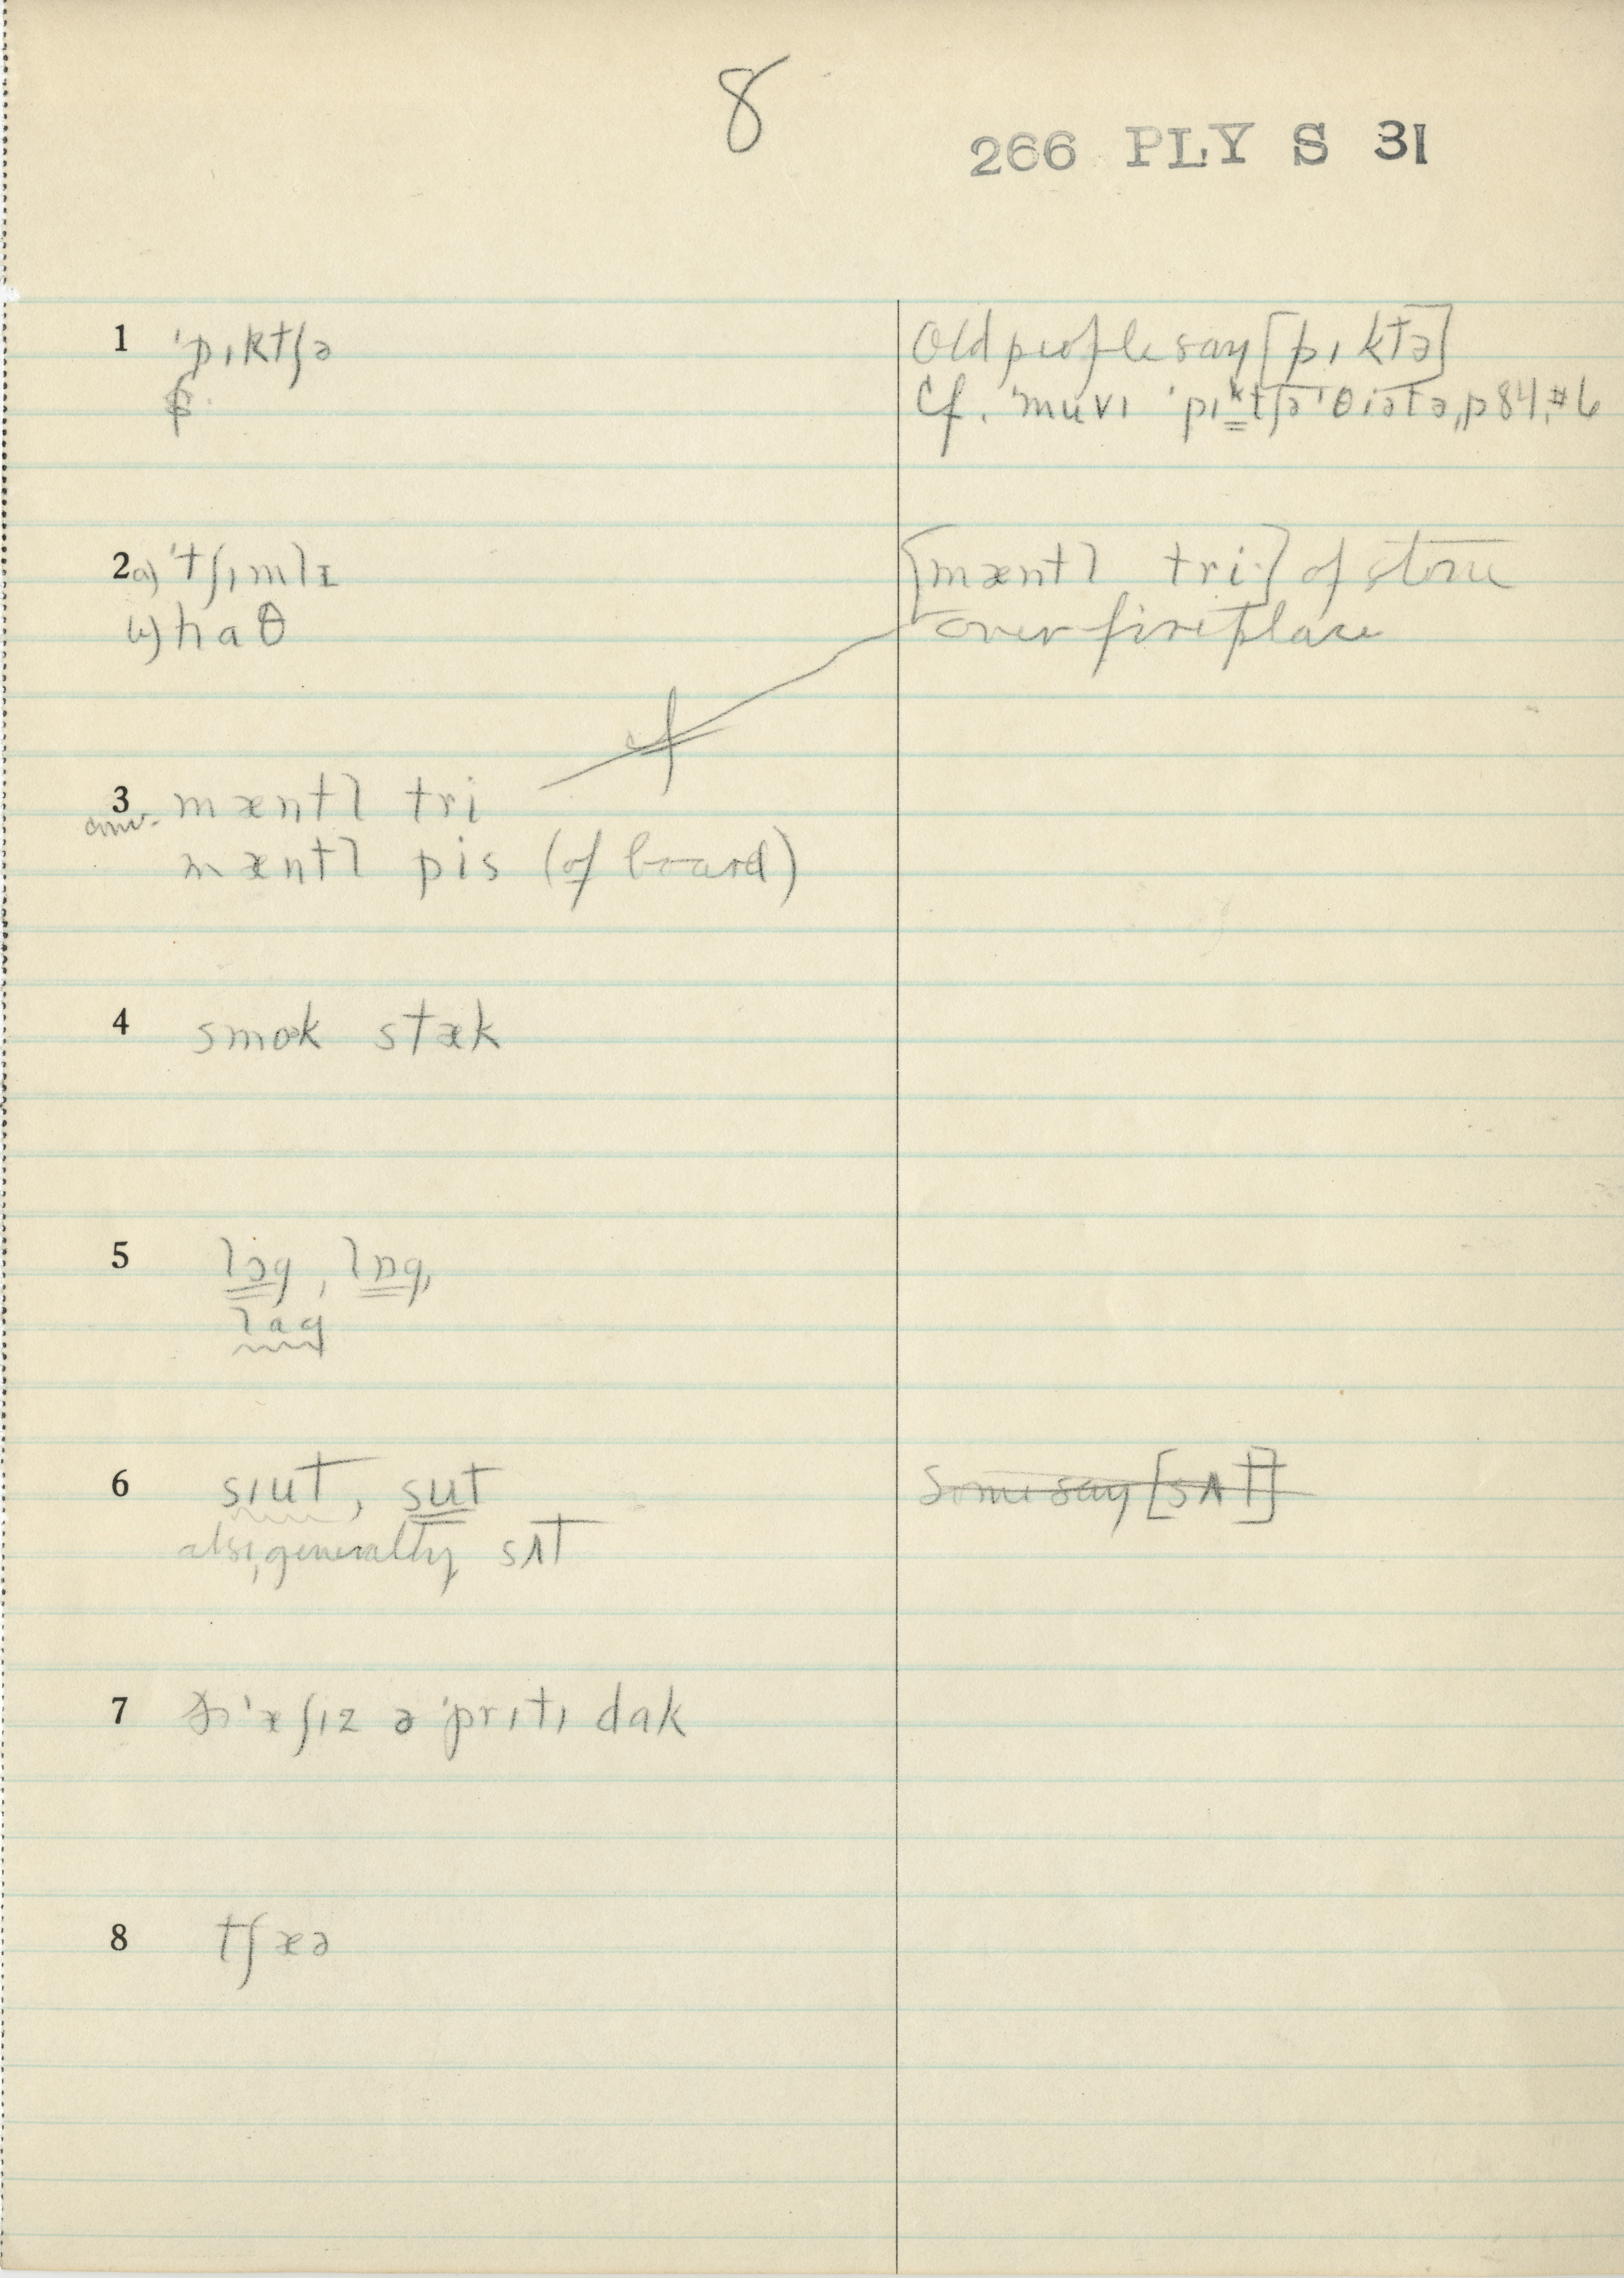 8
266 PLY S 31
1 ˈpɪktʃə
Old people say [pɪktə]
Cf. ˈmuvɪ ˈpɪᵏtʃəˈθiətə, p 84, #6
2 a) ˈtʃɪmlɪ
b) haθ
[mæntl tri] of stone
over fireplace
cf
3 mæntl tri
conv. mæntl pis (of board)
4 smok stæk
5 lɔg, lɒg,
lag
6 sɪut, sut
also, generally sʌt
Some say [sʌt]
7 ˈæʃɪz ə ˈprɪtɪ dak
8 tʃæə